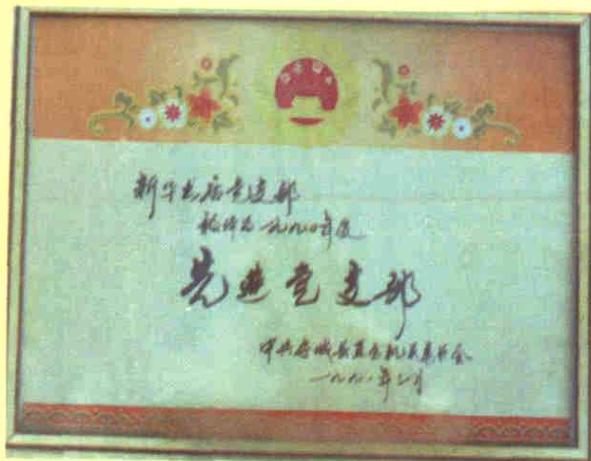 新华书店党支部
被评为一九九〇年度
先进党支部
中共谷城县直属机关委员会
一九九一年二月